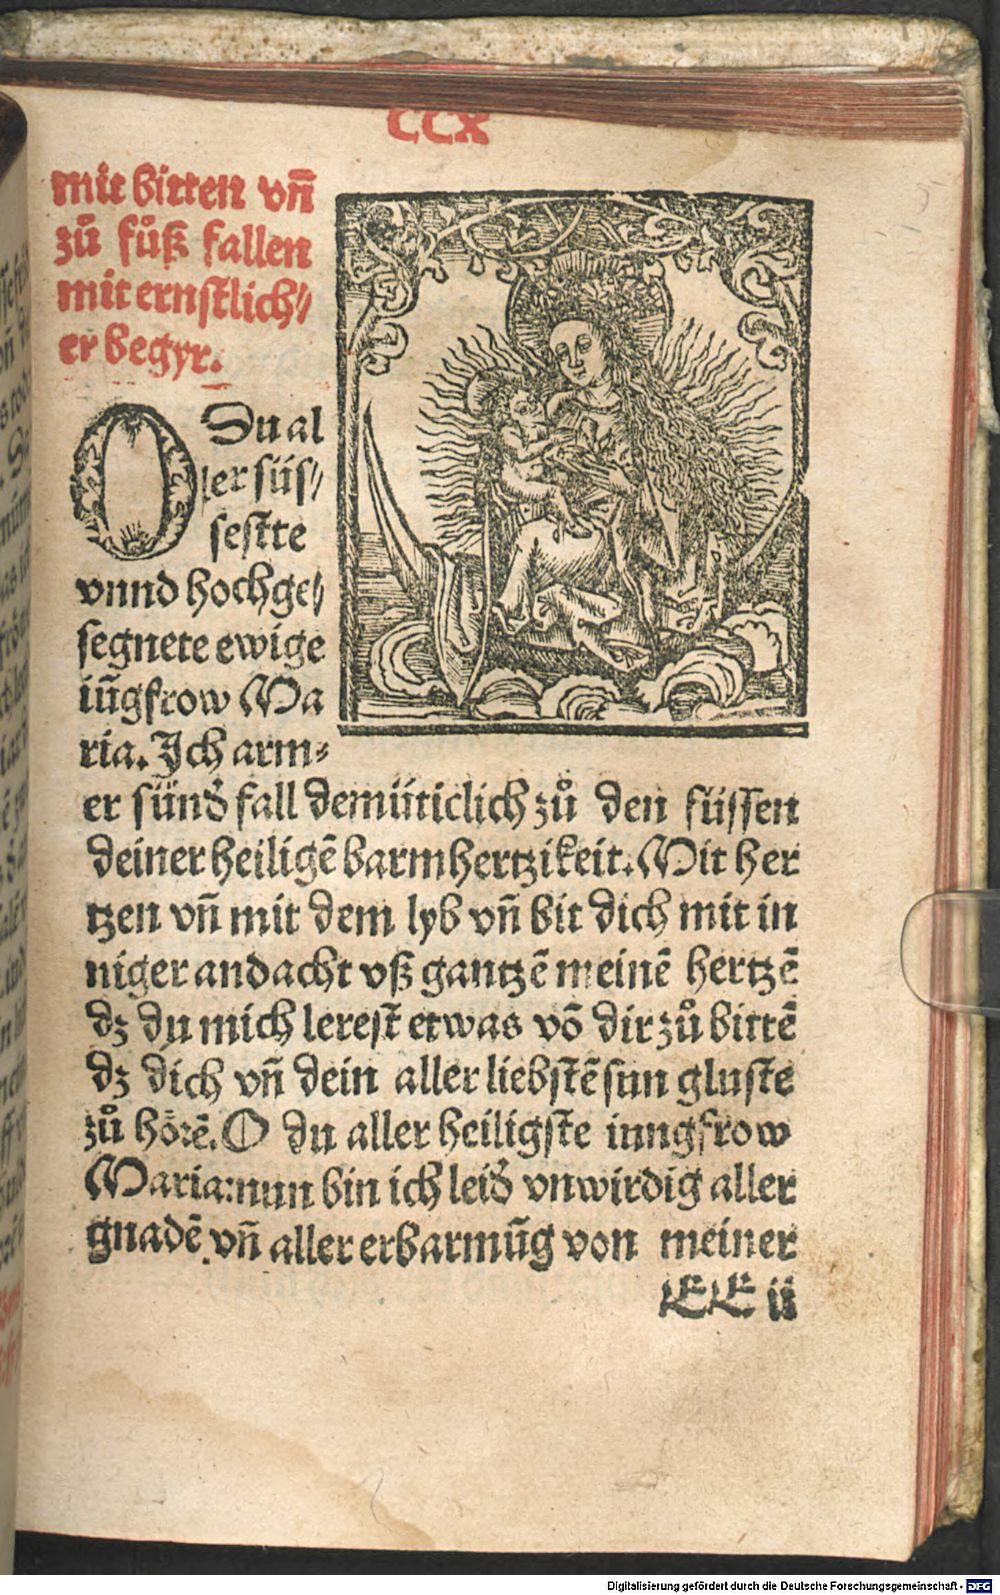 CCX
mit bitten vn̄
zů fůß fallen
mit ernstlich⸗
er begyr.
O Du al
ler süs⸗
sestte
vnnd hochge⸗
segnete ewige
iūgfrow Ma
ria. Ich arm⸗
er sünď fall demüticlich zů den füssen
deiner heiligē barmhertzikeit. Mit her
tzen vn̄ mit dem lyb vn̄ bit dich mit in
niger andacht vß gantzē meinē hertzē
dz du mich lerest etwas vō dir zů bittē
dz dich vn̄ dein aller liebstē sun gluste
zů hörē. O du aller heiligste iungfrow
Maria: nun bin ich leiď vnwirdig aller
gnadē vn̄ aller erbarmūg von meiner
EE ii
Digitalisierung gefördert durch die Deutsche Forschungsgemeinschaft - DFG